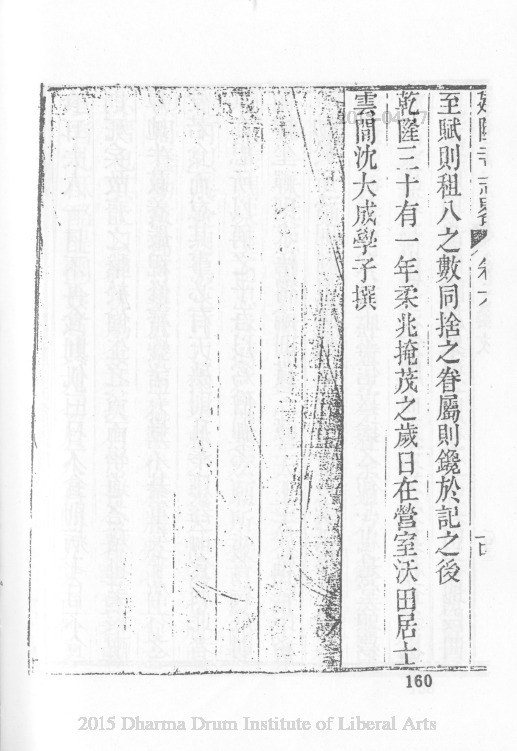 至賦則租入之數同捨之眷屬則鑱於記之後
乾隆三十有一年柔兆掩茂之歲日在營室沃田居士
雲間沈大成學子撰
160
2015 Dharma Drum Institute of Liberal Arts